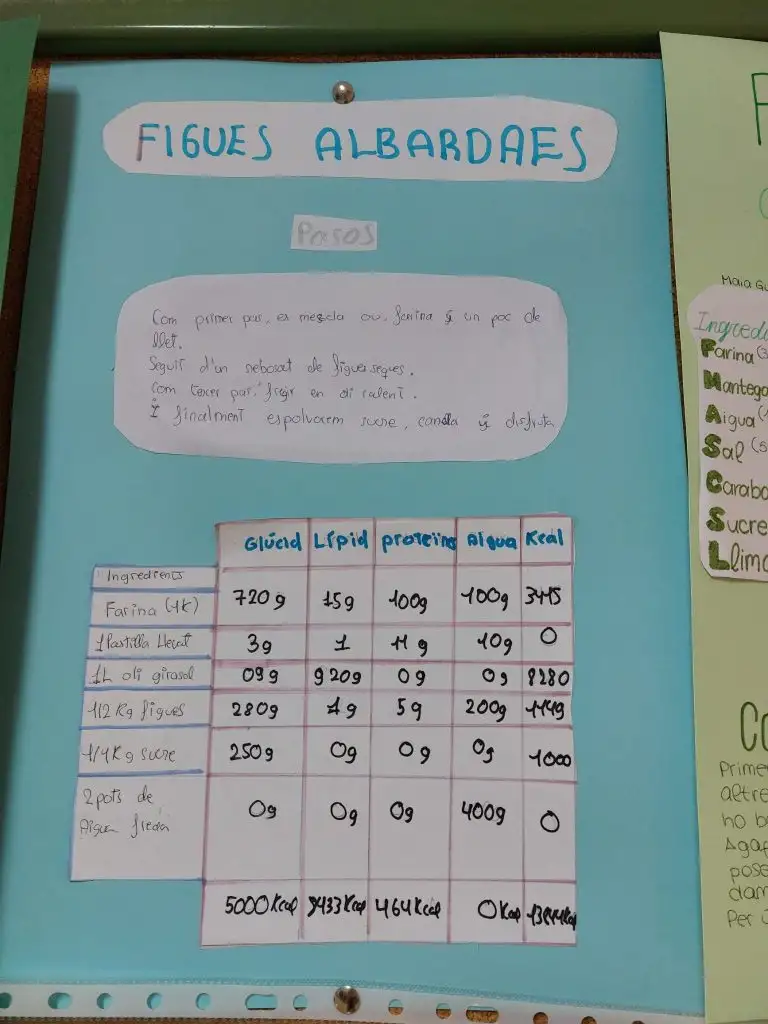 FIGUES ALBARDAES
Pasos
Com primer pas, es mezcla ou, farina y un poc de
llet.
Seguir d'un rebosat de figues seques.
Com tercer pas, fregir en oli calent.
I finalment espolvorem sucre, canela y disfruta
Glúcid Lípid proteïna Aigua Kcal
Ingredients
Farina (1K) 720g 15g 100g 100g 3415
1 Pastilla llevat 3g 1 11g 10g 0
1L oli girasol 09g 920g 0g 0g 8280
1/2 Kg figues 280g 1g 5g 200g 1149
1/4 Kg sucre 250g 0g 0g 0g 1000
2 pots de
Aigua freda 0g 0g 0g 400g 0
5000Kcal 8433Kcal 464Kcal 0Kcal
Maia Gu
Ingredi
Farina (3
Mantega
Aigua (1
Sal (5
Caraba
Sucre
Llimo
Co
Prime
altre
no b
Agaf
pose
dam
Per ú